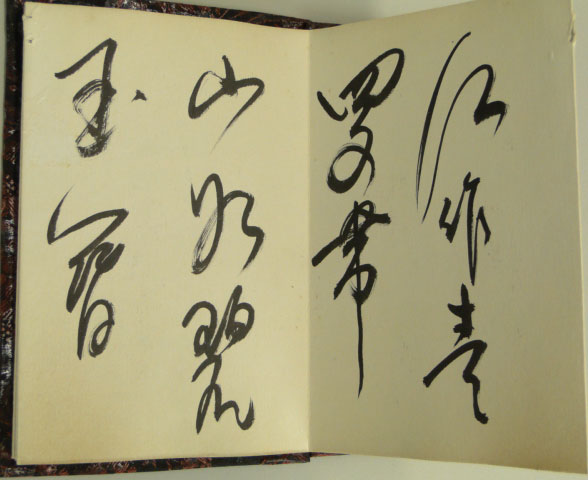 江作青
罗带
山如碧
玉簪